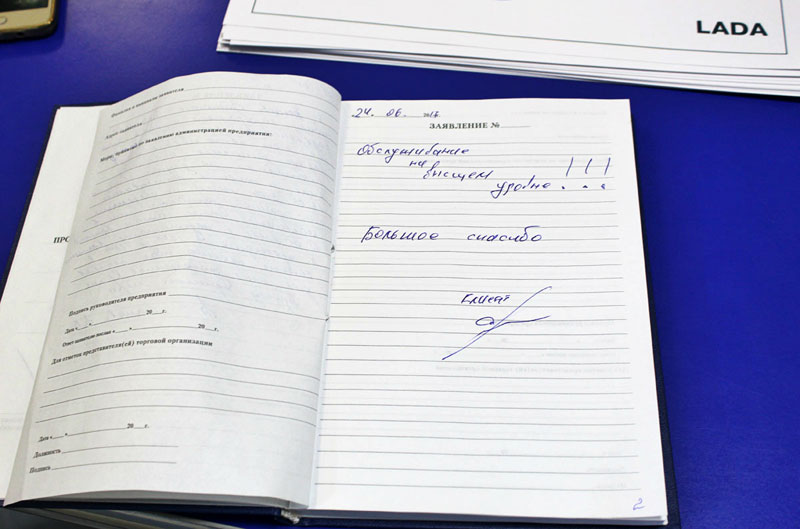 LADA
Фамилия и инициалы заявителя
Адрес заявителя
Меры, принятые по заявлению администрацией предприятия:
ПРО
Подпись руководителя предприятия
Дата «___» 20___г.
Ответ заявителю послан «___» 20___г.
Для отметок представителя(ей) торговой организации
Дата «___» 20___г.
Должность
Подпись
24. 06. 2016.
ЗАЯВЛЕНИЕ №
Обслуживание
на
высщем
уровне !!!
Большое спасибо
Клиент
2